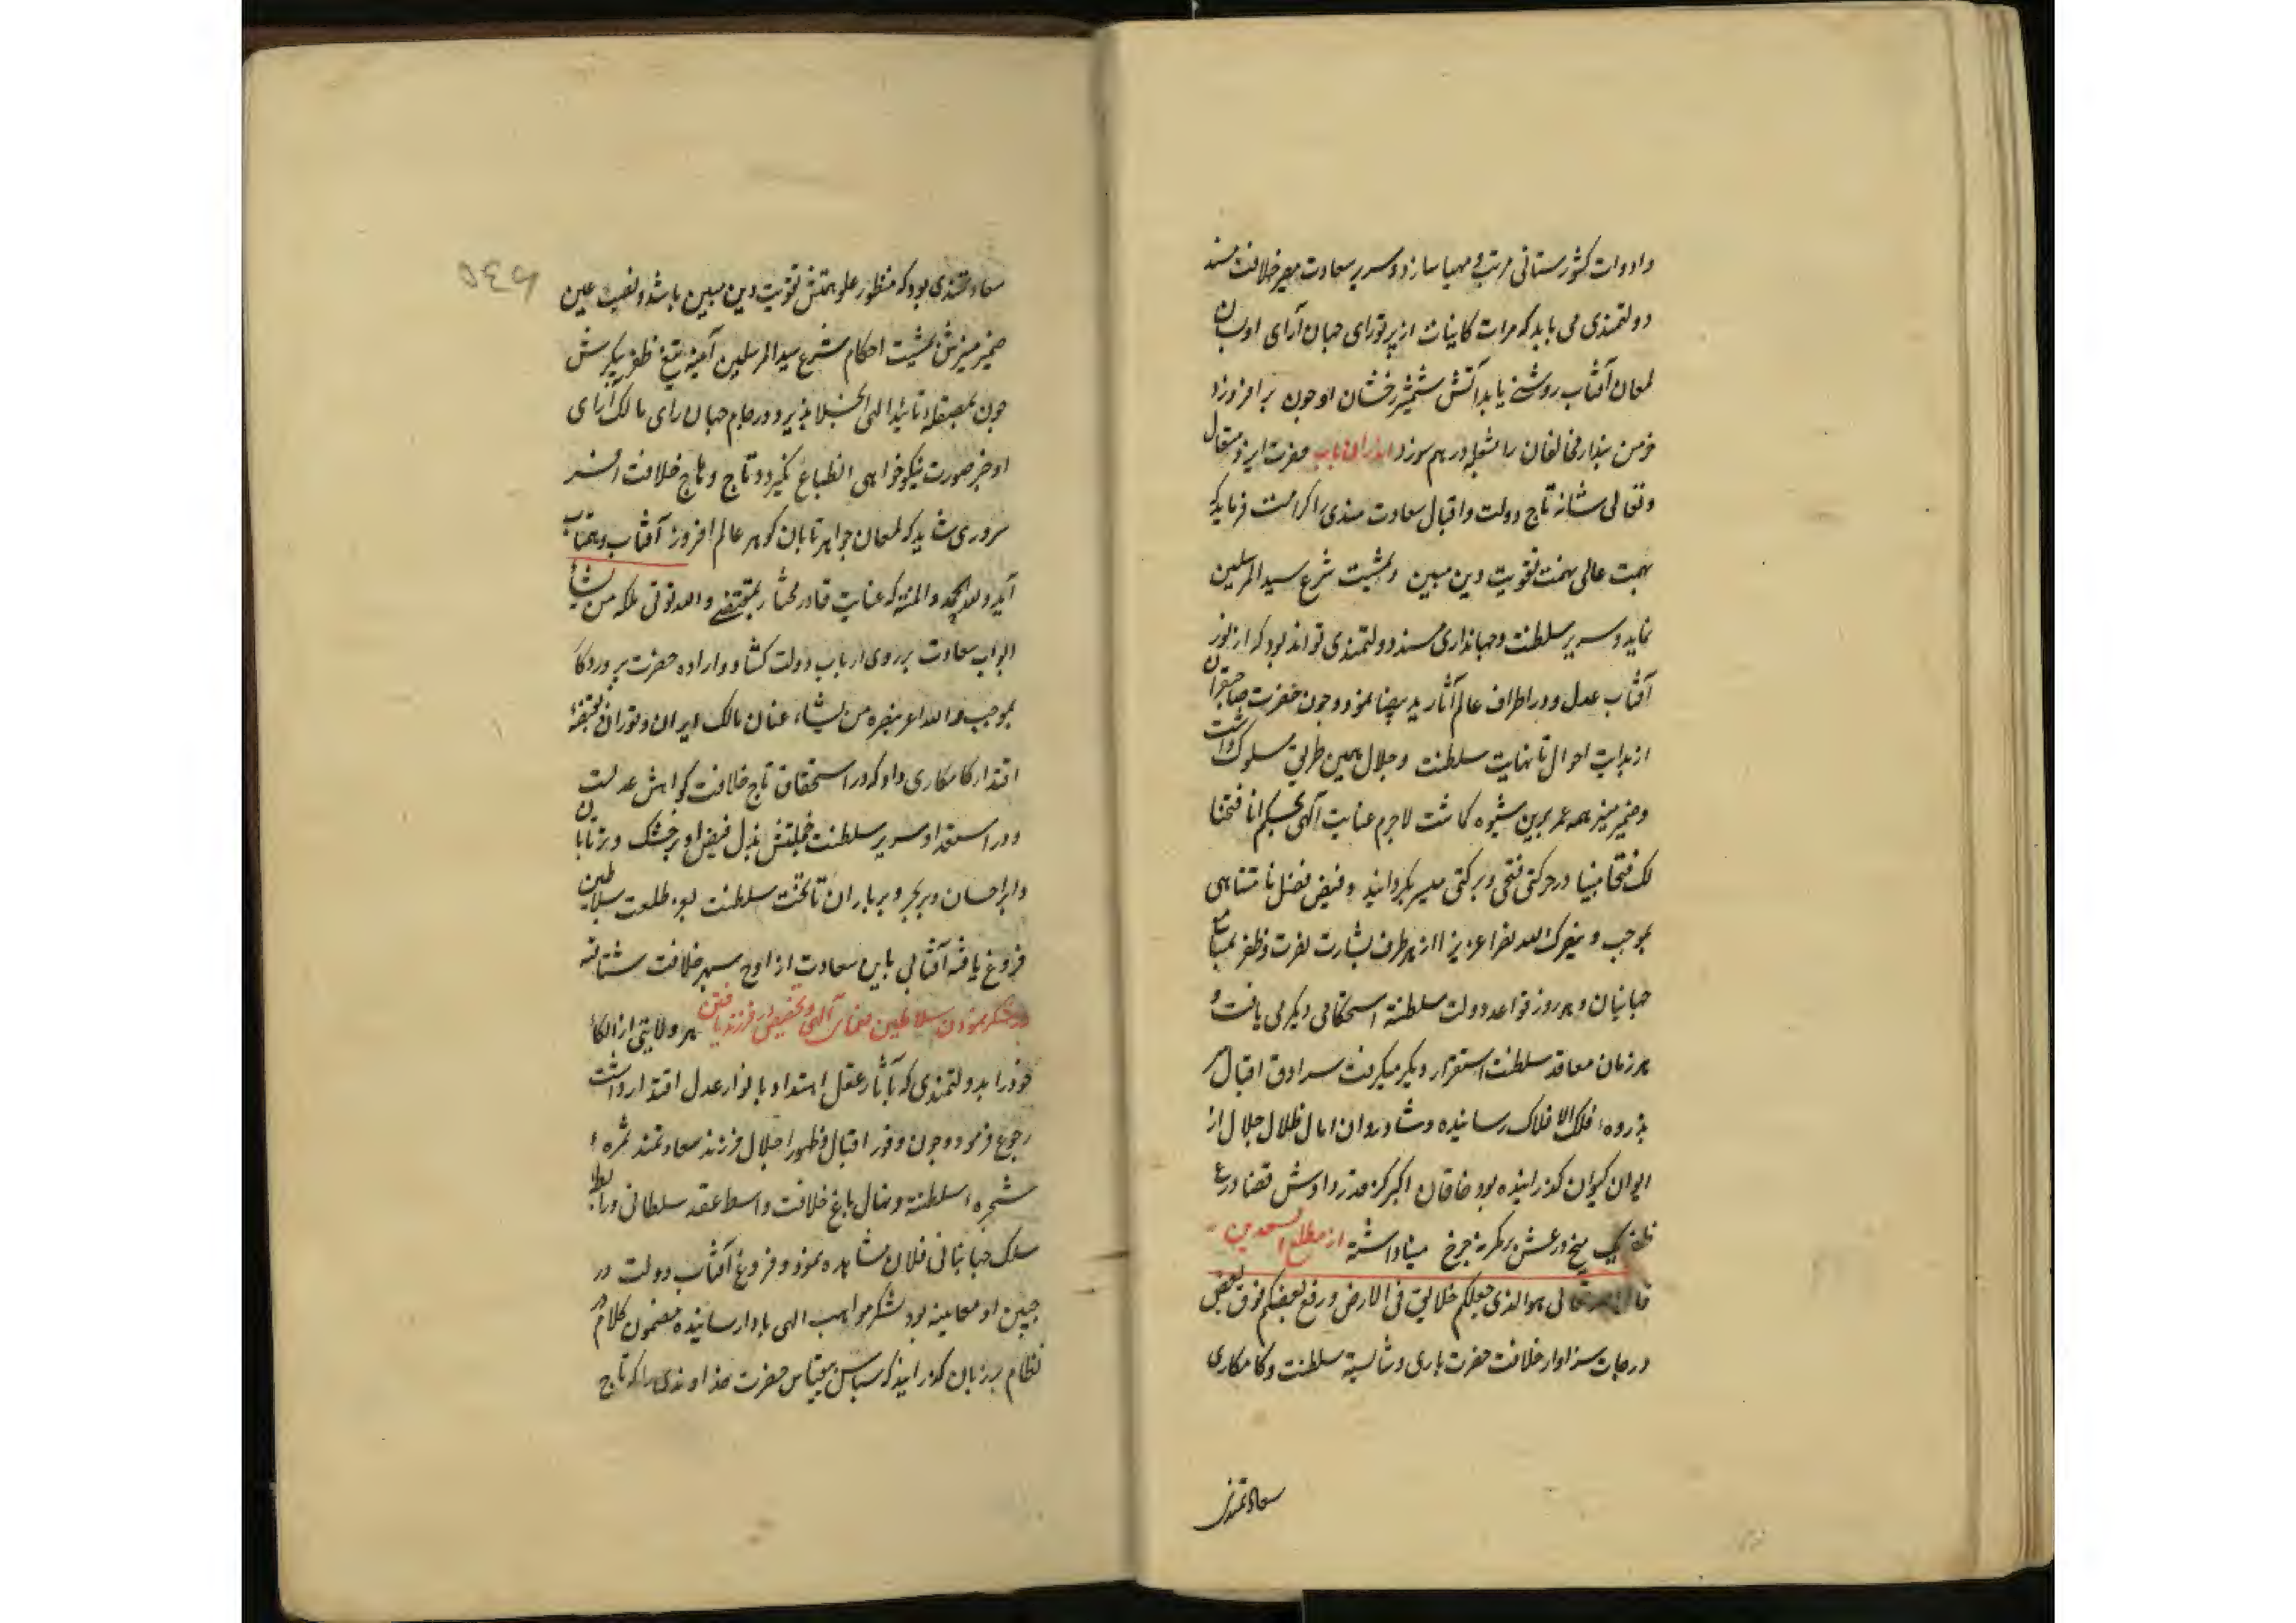 وادوات کشورستانی مرتب و مهیا سازد و سریر سعادت مصیر خلافت مسند
دولتمندی می باید که مرات کاینات از پرتو رای جهان آرای او بسان
لمعان آفتاب روشنی یابد آتش شمشیر رخشان او چون بر افروزد
خرمن پندار مخالفان را بشعله درهم سوزد ایضا در این باب حضرت ایزد متعال
وتعالی شانه تاج دولت واقبال سعادت مندی را کرامت فرماید که
همت عالی نهمت تقویت دین مبین و بمشیت شرع سید المرسلین
نماید و سریر سلطنت وجهانداری مسند دولتمندی تواند بود که از نور
آفتاب عدل و در اطراف عالم آثار ید بیضا نمود وچون حضرت صاحبقران
از بدایت احوال تا نهایت سلطنت وجلال همین طریق مسلوک داشت
وضمیر منیر همه عمر برین شیوه کماشت لاجرم عنایت آلهی بحکم انا فتحنا
لک فتحا مبینا در حرکتی فتحی و برکتی میسر بکردانید وفیض فضل نامتناهی
بموجب و ینصرک الله نصرا عزیزا از هر طرف بشارت نصرت وظفر بمسامع
جهانیان و هر روز قواعد دولت سلطنة استحکامی دیکر می یافت و
هر زمان معاقد سلطنت استقرار دیکر میکرفت سرادق اقبال
بذروه فلک الافلاک رسانیده و شادروان امال ظلال جلال از
ایوان کیوان کذرانیده بود خاقان اکبر کز قدر دادش قضا درع
ظفر یک میخ در عش بر کمرنه چرخ مینا داشته از مطلع السعدین
قال الله تعالی هو الذی جعلکم خلائف فی الارض ورفع بعضکم فوق بعض
درجات سزاوار خلافت حضرت باری وشایسته سلطنت وکامکاری
سعادتمندی
٥٤٦
سعادتمندی بود که منظور علو همتش تقویت دین مبین باشد و نصب عین
ضمیر منیرش بمشیت احکام شرع سید المرسلین آینه تیغ ظفر پیکرش
چون بمصقله تائید الهی انجلا پذیرد در جام جهان رای ممالک آرای
او جز صورت نیکو خواهی انطباع نکیرد و تاج وهاج خلافت افسر
سروری شاید که لمعان جواهر تابان کوهر عالم افروز آفتاب و مهتاب
آید ولله الحمد والمنه که عنایت قادر مختار بمقتضی والله یوتی ملکه من یشاء
ابواب سعادت بر روی ارباب دولت کشاد و اراده حضرت پروردکار
بموجب والله یوید بنصره من یشاء عنان ممالک ایران و توران بقبضه
اقتدار کامکاری داد که در استحقاق تاج خلافت کواهش عدلت
و در استعداد سریر سلطنت خجلتش بذل فیض او بر خشک و تر تابان
وابر احسان و بر بحر و بر باران تا تخت سلطنت بود طلعت سلاطین
فروغ یافته آفتابی باین سعادت از اوج سپهر خلافت نشتافته
در شکر نمودن سلاطین نعمای آلهی و تخصیص در فرزند یافتن هر ولایتی از الکاء
خود را بدولتمندی که بآثار عقل اهتدا و بانوار عدل اقتدار داشت
رجوع فرمود وچون وفور اقبال وظهور اجلال فرزند سعادتمند ثمره
شجره سلطنة و نهال باغ خلافت واسطه عقد سلطانی و رابطه
سلک جهانبانی فلان مشاهده نمود و فروغ آفتاب دولت در
جبین او معاینه بود شکر مواهب الهی بادا رسانیده مضمون کلام در
نظام بر زبان کذرانید که سپاس بیقیاس حضرت خداوندی را که تاج